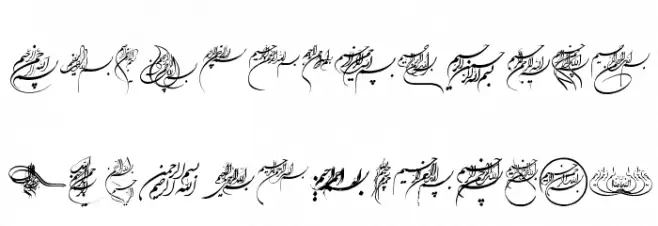 بسم الله الرحمن الرحيم بسم الله الرحمن الرحيم بسم الله الرحمن الرحيم بسم الله الرحمن الرحيم بسم الله الرحمن الرحيم بسم الله الرحمن الرحيم بسم الله الرحمن الرحيم بسم الله الرحمن الرحيم بسم الله الرحمن الرحيم بسم الله الرحمن الرحيم بسم الله الرحمن الرحيم بسم الله الرحمن الرحيم بسم الله الرحمن الرحيم
بسم الله الرحمن الرحيم بسم الله الرحمن الرحيم بسم الله الرحمن الرحيم بسم الله الرحمن الرحيم بسم الله الرحمن الرحيم بسم الله الرحمن الرحيم بسم الله الرحمن الرحيم بسم الله الرحمن الرحيم بسم الله الرحمن الرحيم بسم الله الرحمن الرحيم بسم الله الرحمن الرحيم بسم الله الرحمن الرحيم